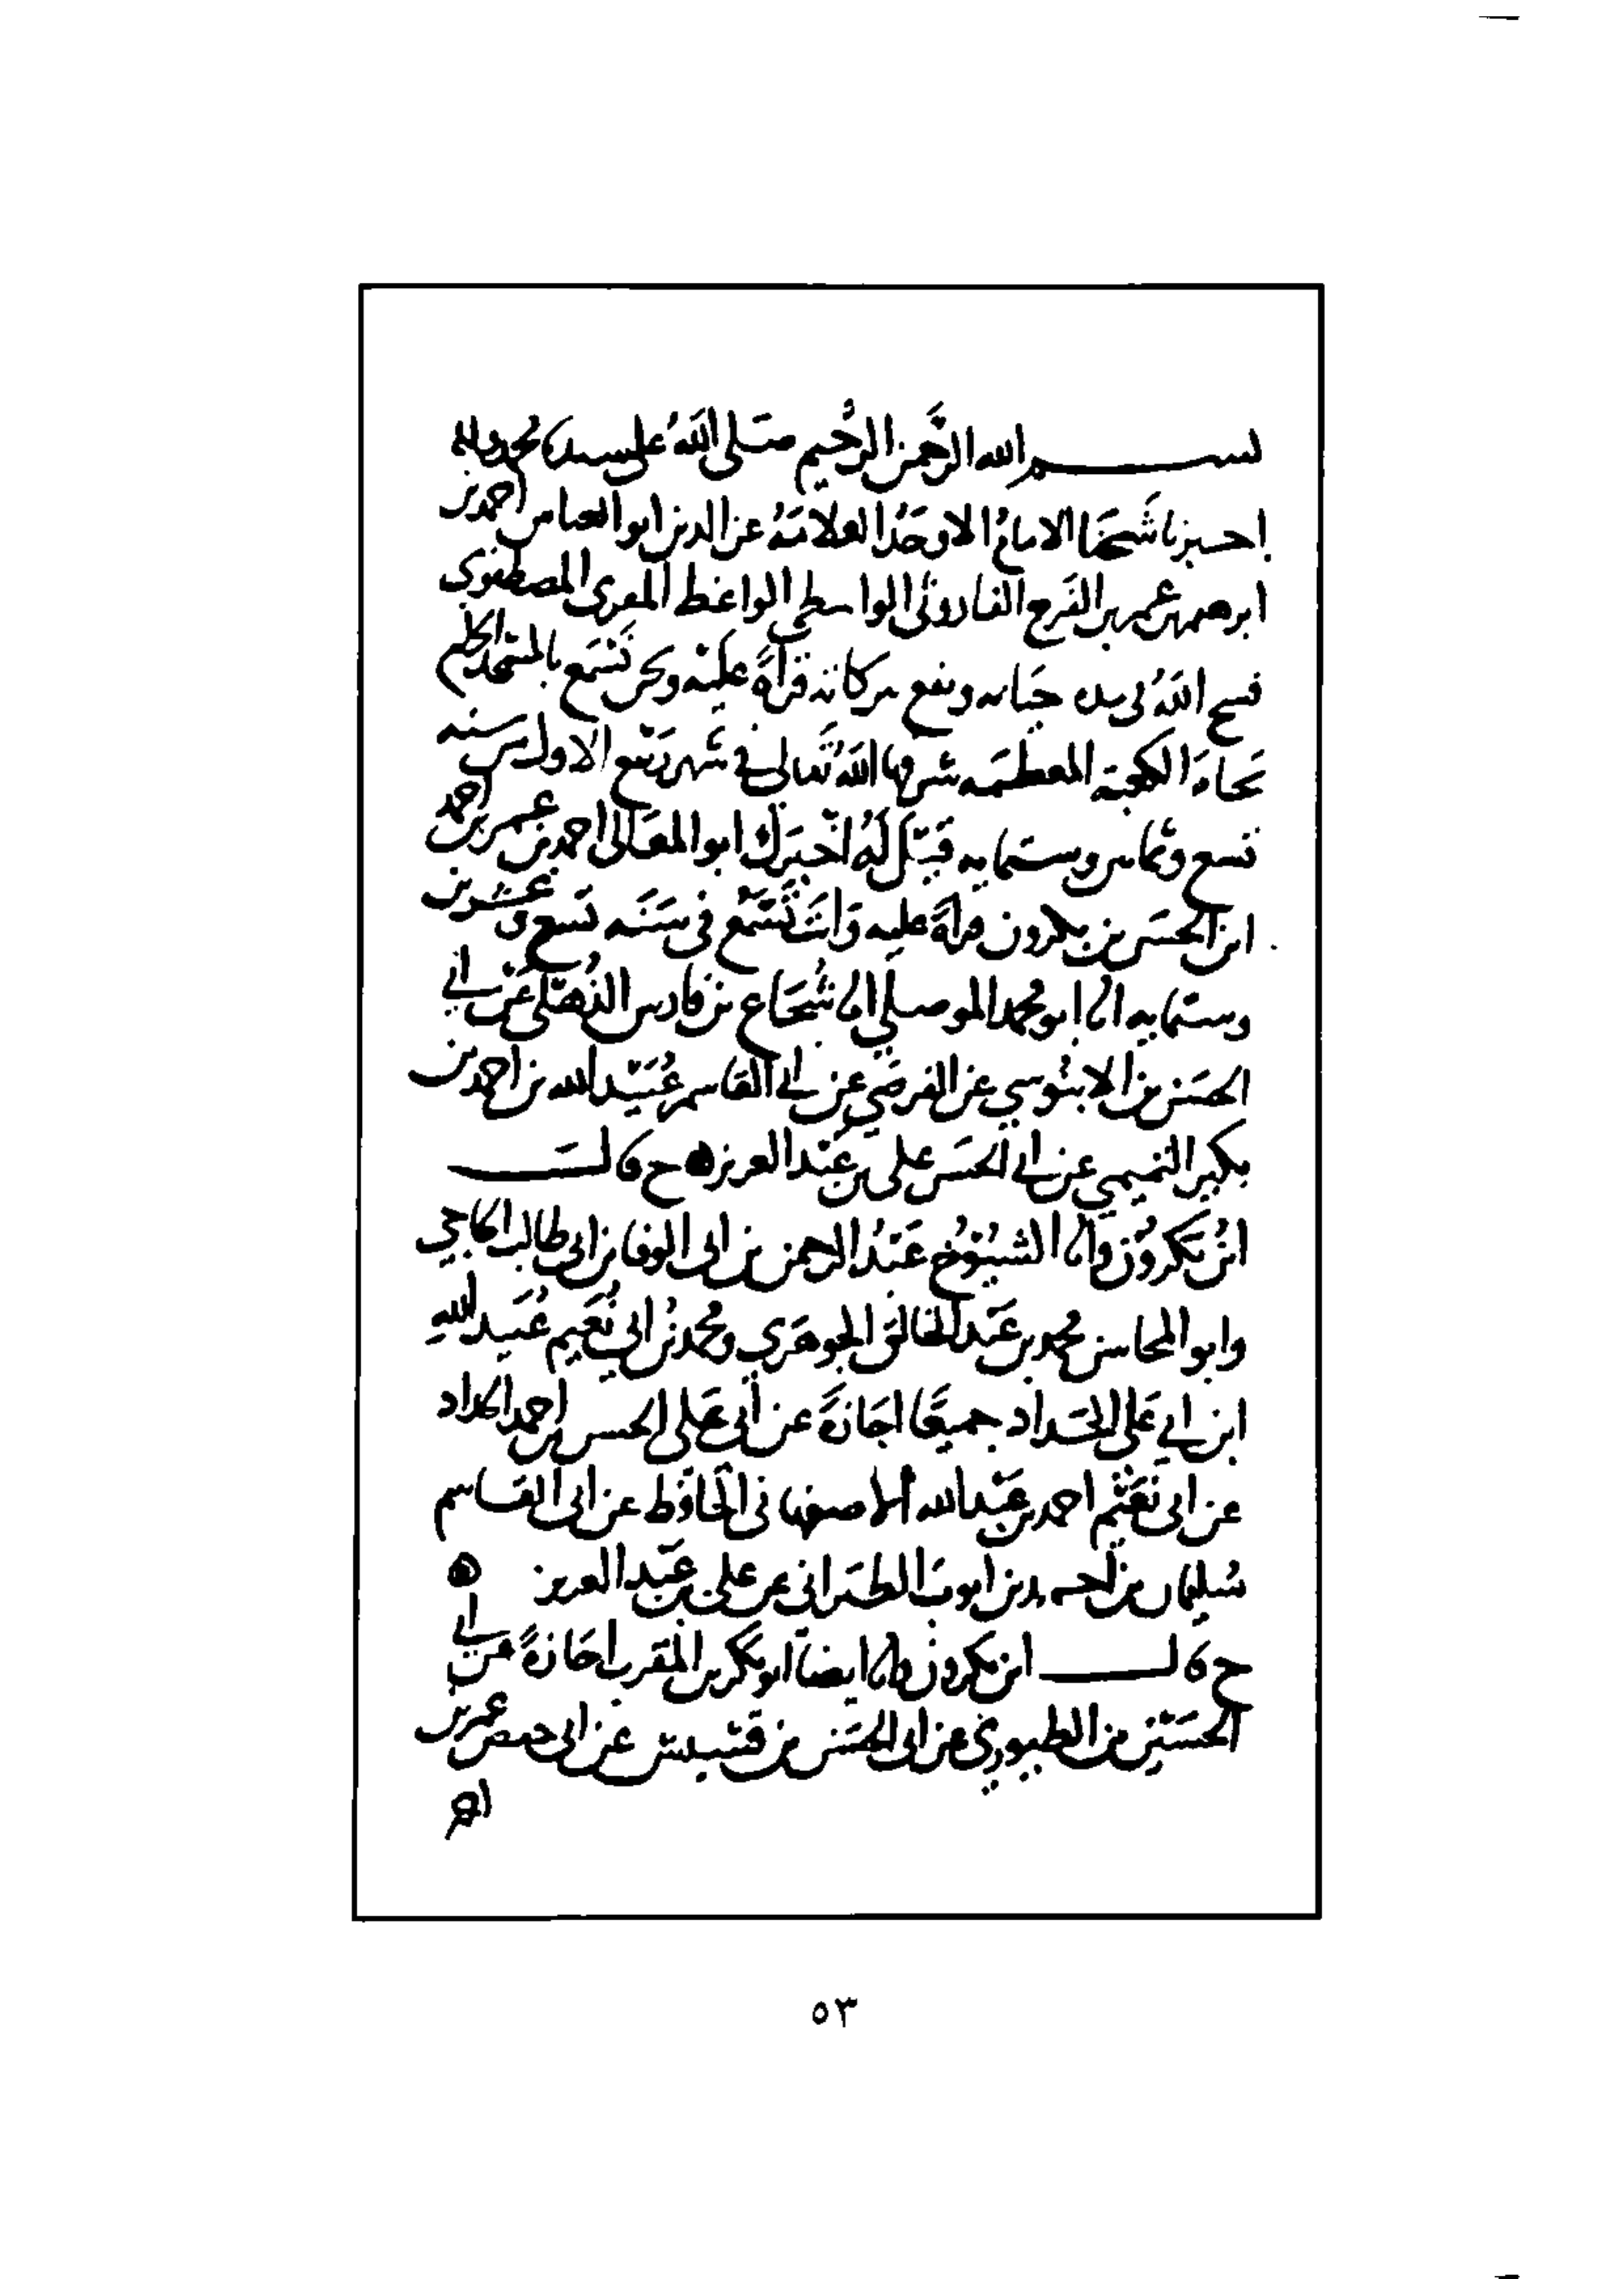 بســـم الله الرَّحمن الرَّحيم صَلى اللهُ على سيدنا محمد واله
اخبرنا شَيخنا الامامُ الاوحَدُ العلامَهُ عز الدين ابو العباس احمد بن
ابرهيم بن عمر بن الفَرج الفاروثي الواسطي الواعظ المقرى المصطفوي
فسح اللهُ في مدة حيَاته ونفع ببركاته قرأةً عليْه ونحن نَسْمَع بالمسجد الحرام
تجاهَ الكعبة المعظمَه شرفها اللهُ تَعالى في شَهر رَبيْع الاول من سنه
تسع وثمانين وستمايه قيْلَ لَهُ اخْبَركَ ابو المعَالي احمد بن عمر بن احمد
ابن الحسَن بن بكرون قرأةً عليه وَانتَ تَسْمَع في سَنَه تسع وعشرين
وستمايه انا ابو محمد الموصلي انا شجَاع بن فارس الذُهلي عَن ابي
الحسَن بن الابنُوسي عن الفرضي عن ابي القاسم عُبَيْد الله بن احمد بن
بكير التميمي عن ابي الحسَن علي بن عَبْد العزيز ه ح قالــــ
ابنُ بَكرُون وانا الشيُوُخ عَبْدُ الرحمن بن ابي الوفا بن ابي طالب الحاجي
وابو المحاسن محمد بن عَبْد الخالق الجوهَري ومحمد بنُ ابي نُعَيم عُبَيد اللهِ
ابن ابي عَلي الحَداد جميعًا اجَازةً عن أبي عَلي الحسن بن احمد الحداد
عن ابي نعَيْم احمد بن عَبْد الله الاصفهاني الحافظ عن ابي القاسم
سُليمان بن احمد بن ايوبَ الطبَراني عن علي بن عَبْد العزيز ه
ح قالـــــ ابن بكرون وانا ايضًا ابو بَكر بن المُقَرب اجَازةً عن ابي
الحسَيْن بن الطيوري عن ابي الحسَن بن قشيش عن ابي حفص عمر بن
٥٣